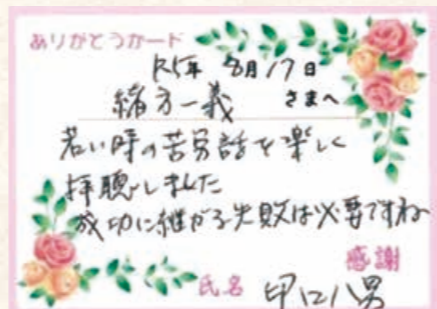 ありがとうカード
R5年 8月17日
緒方一義 さまへ
若い時の苦労話を楽しく
拝聴しました
成功に継がる失敗は必要ですね
感謝
氏名 甲口八男